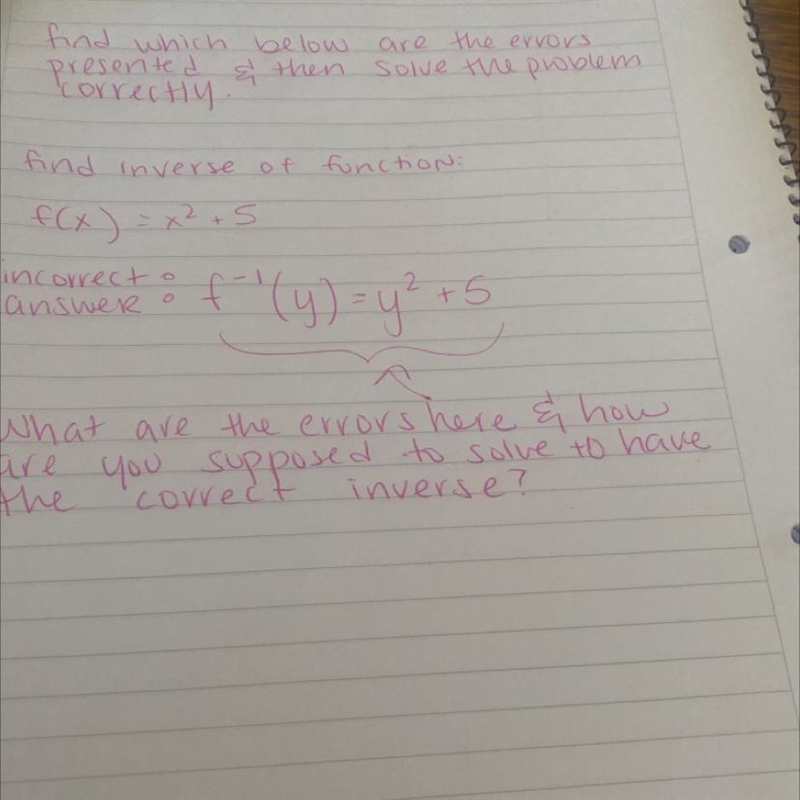 find which below are the errors
presented & then solve the problem
correctly.
find inverse of function:
f(x) = x² + 5
incorrect :
answer : f⁻¹(y) = y² + 5
What are the errors here & how
are you supposed to solve to have
the correct inverse?